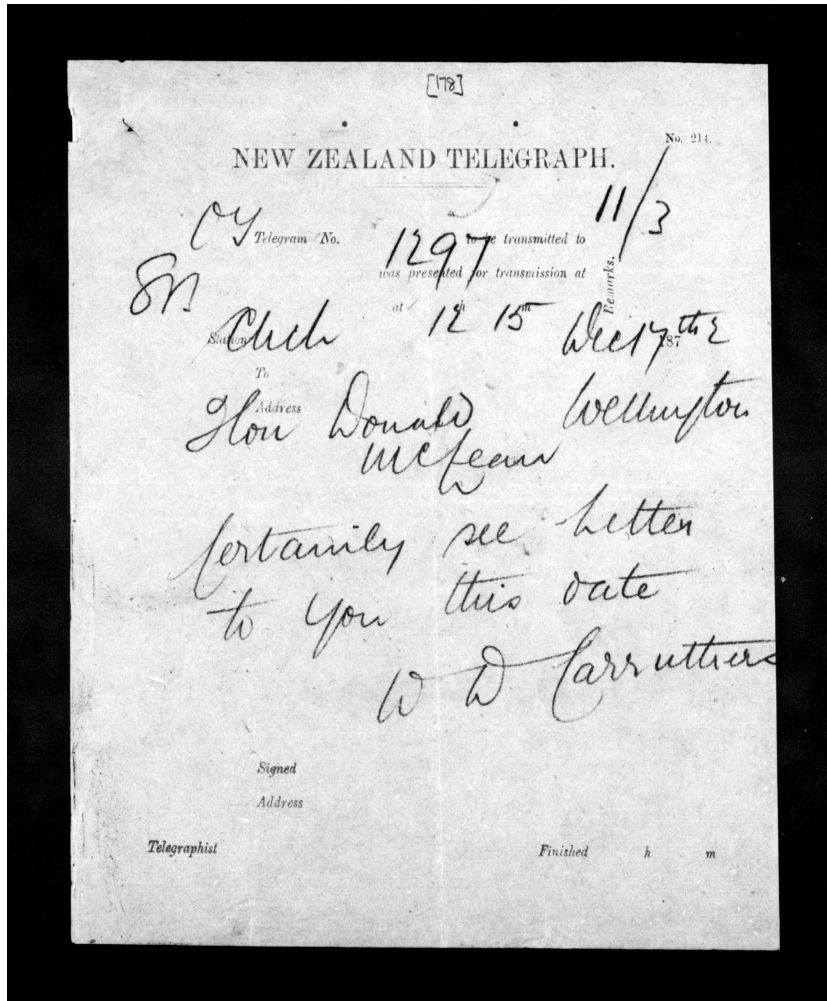 [178]
No. 214.
NEW ZEALAND TELEGRAPH.
11/3
Telegram No. 1297 to be transmitted to
was presented for transmission at
Remarks.
at 12 h 15 m
Station Chch Dec 17th 1872
To
Address
Hon Donald Wellington
McLean
Certainly see letter
to you this date
W D Carruthers
Signed
Address
Telegraphist Finished h m